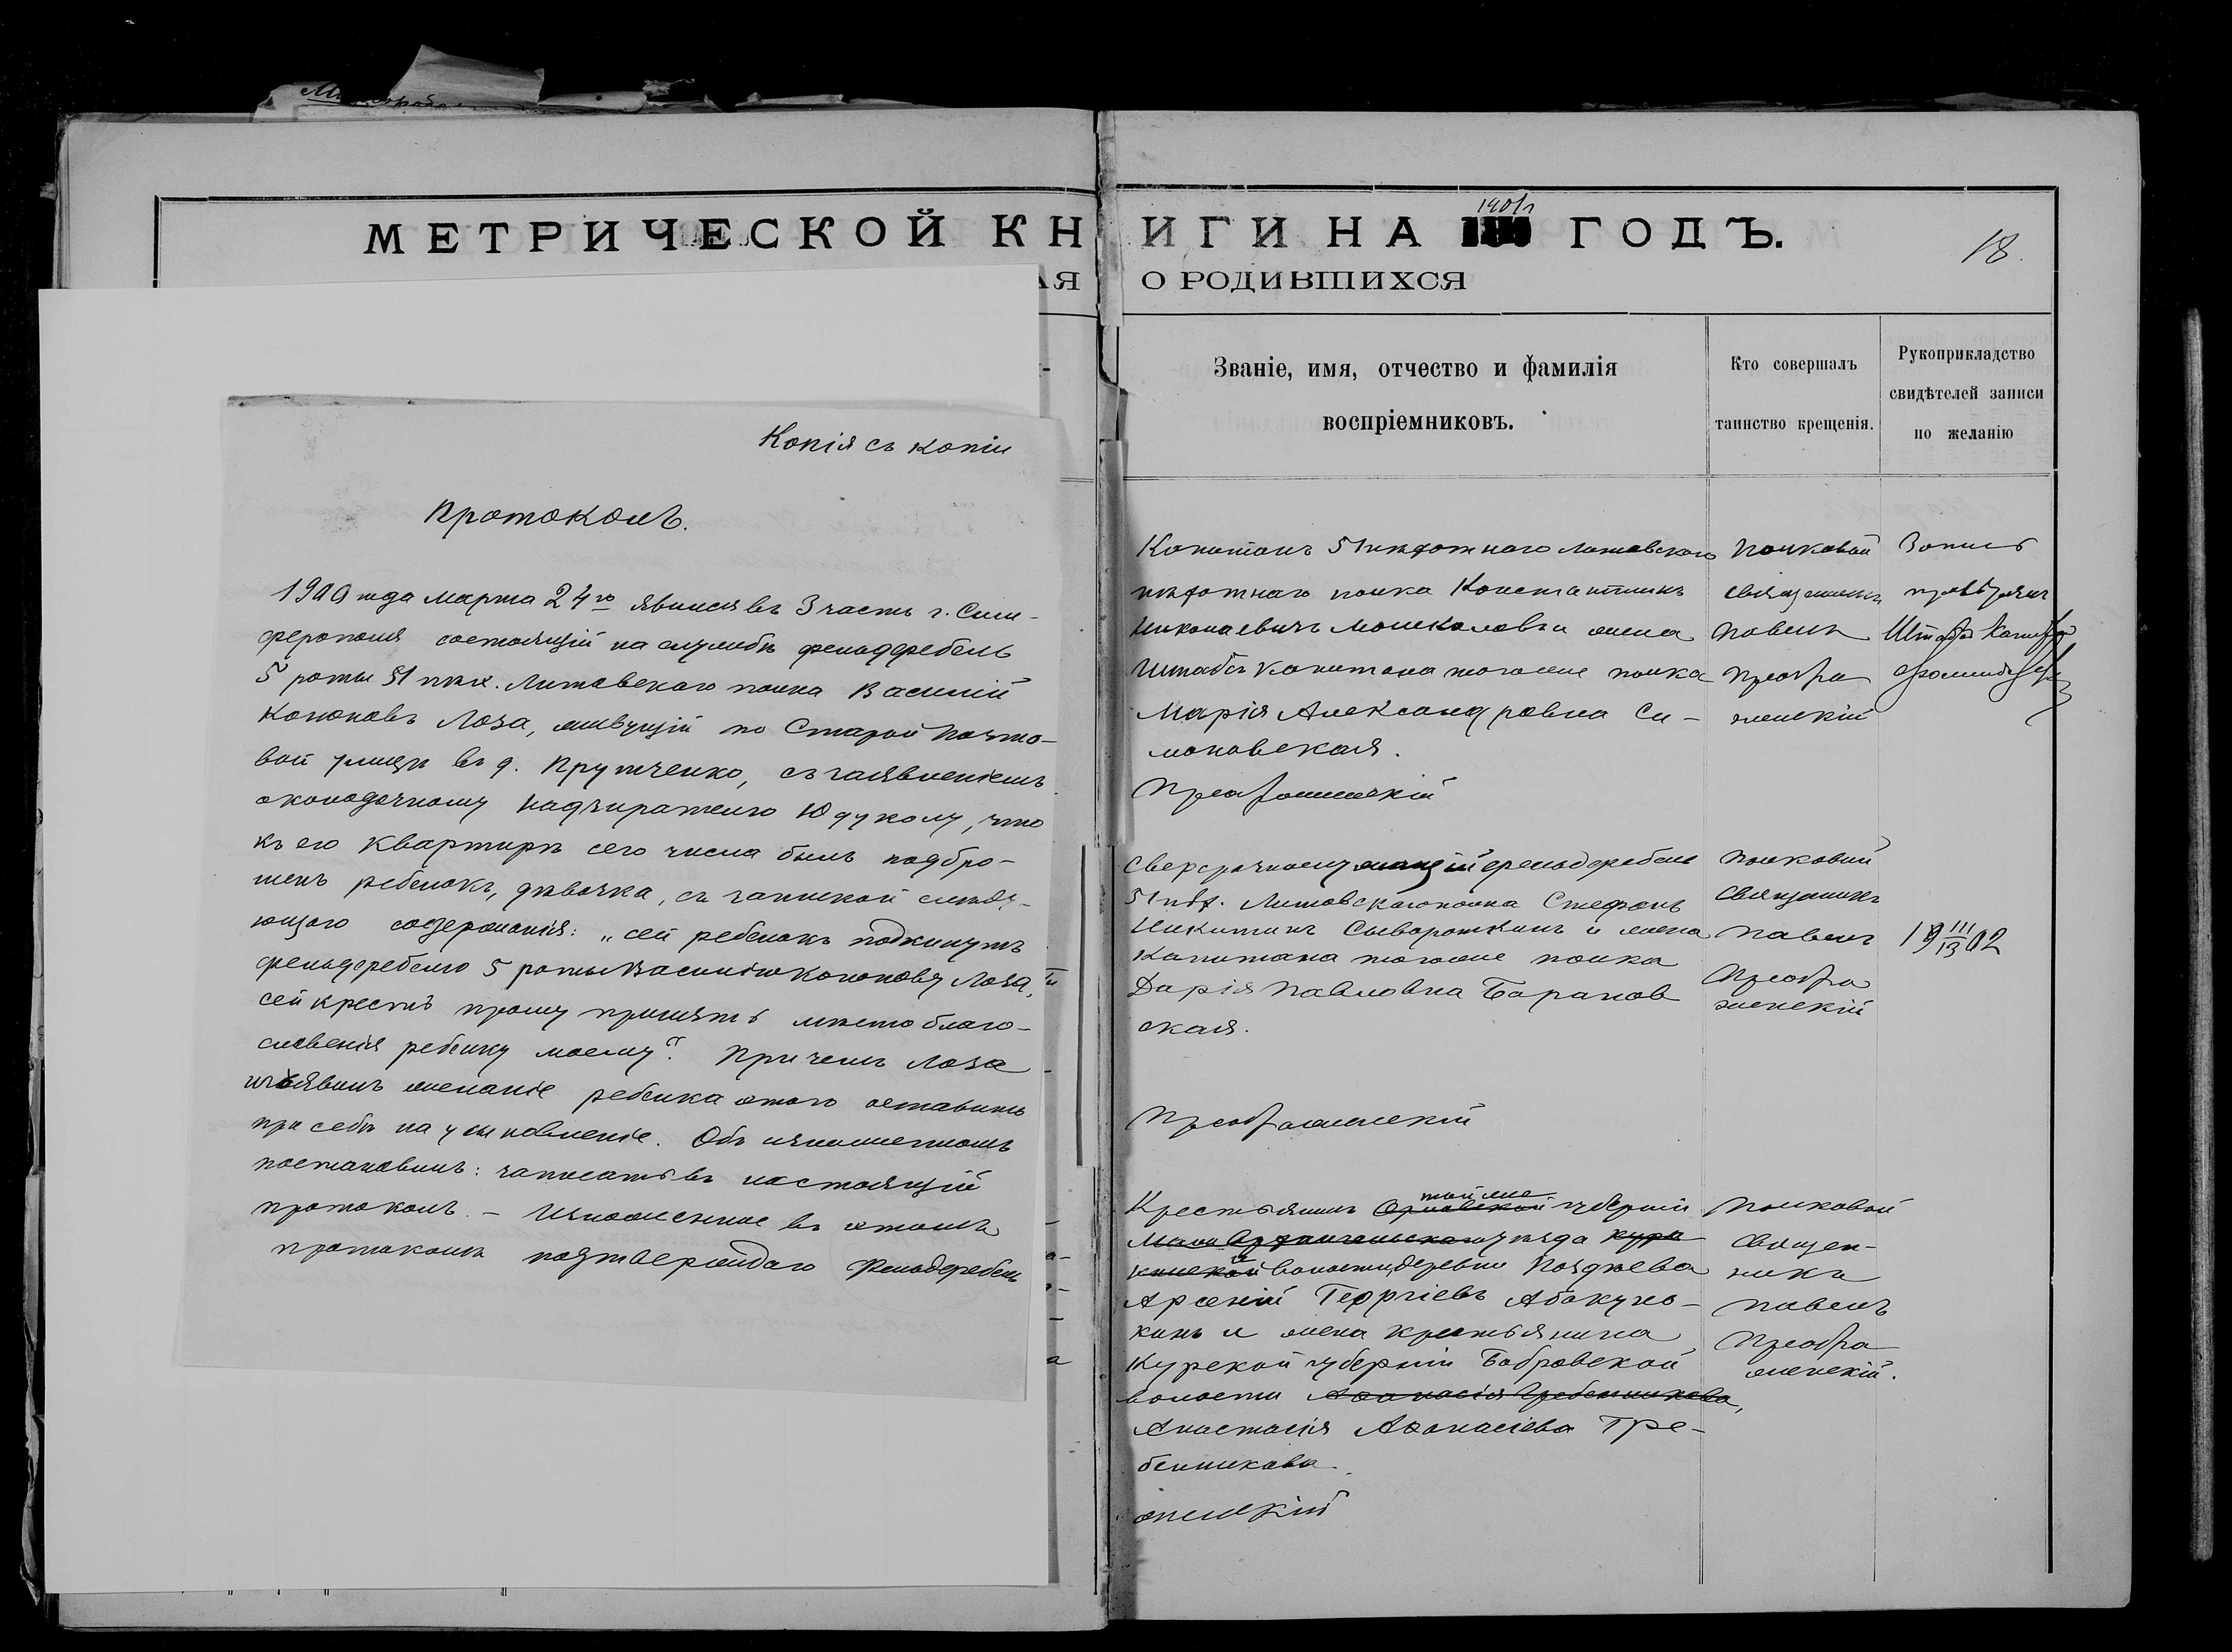 МЕТРИЧЕСКОЙ КНИГИ НА 1901 г ГОДЪ.
18.
АЯ О РОДИВШИХСЯ
Копія съ копіи
Протоколъ.
1900 года марта 24го явился въ 3 часть г. Сим-
ферополя состоящій на службѣ фельдфебель
5 роты 51 пѣх. Литовскаго полка Василій
Кононовъ Лоза, живущій по Старой Почто-
вой улицѣ въ д. Прутченко, съ заявленіемъ
околодочному надзирателю Юдукову, что
къ его квартирѣ сего числа былъ подбро-
шенъ ребенокъ, дѣвочка, съ запиской слѣду-
ющаго содержанія: „сей ребенокъ подкинутъ
фельдфебелю 5 роты Василію Кононову Лоза,
сей крестъ прошу принять мѣсто благо-
словенія ребенку моему". При чемъ Лоза
изъявилъ желаніе ребенка этого оставить
при себѣ на усыновленіе. Объ изложенномъ
постановилъ: записать въ настоящій
протоколъ. – Изложенное въ этомъ
протоколѣ подтверждаю Фельдфебель
Званіе, имя, отчество и фамилія
воспріемниковъ.
Кто совершалъ
таинство крещенія.
Рукоприкладство
свидѣтелей записи
по желанію
Капитанъ 51 пѣхотнаго Литовскаго
пѣхотнаго полка Константинъ
Николаевичъ и жена
Штабсъ капитана того же полка
Марія Александровна Си-
моновская.
Преображенскій
Полковой
священникъ
Павелъ
Преобра
женскій
Запись
провѣрялъ
Штабсъ Капитанъ
Сверхсрочнослужащій фельдфебель
51 пѣх. Литовскаго полка Стефанъ
Никитинъ Сывороткинъ и жена
Капитана того же полка
Дарія Павловна Баранов
ская.
Преображенскій
Полковой
Священникъ
Павелъ
Преобра
женскій
19 III/13 02
той же
Крестьянинъ Орловской губерніи
Мало Архангельскаго уѣзда
волости, деревни Позднева
Арсеній Георгіевъ Абакумо-
кинъ и жена крестьянина
Курской губерніи Бобровской
волости Афанасія Гребенникова,
Анастасія Афанасіева Гре-
бенникова.
женскій
Полковой
Священ-
никъ
Павелъ
Преобра
женскій.